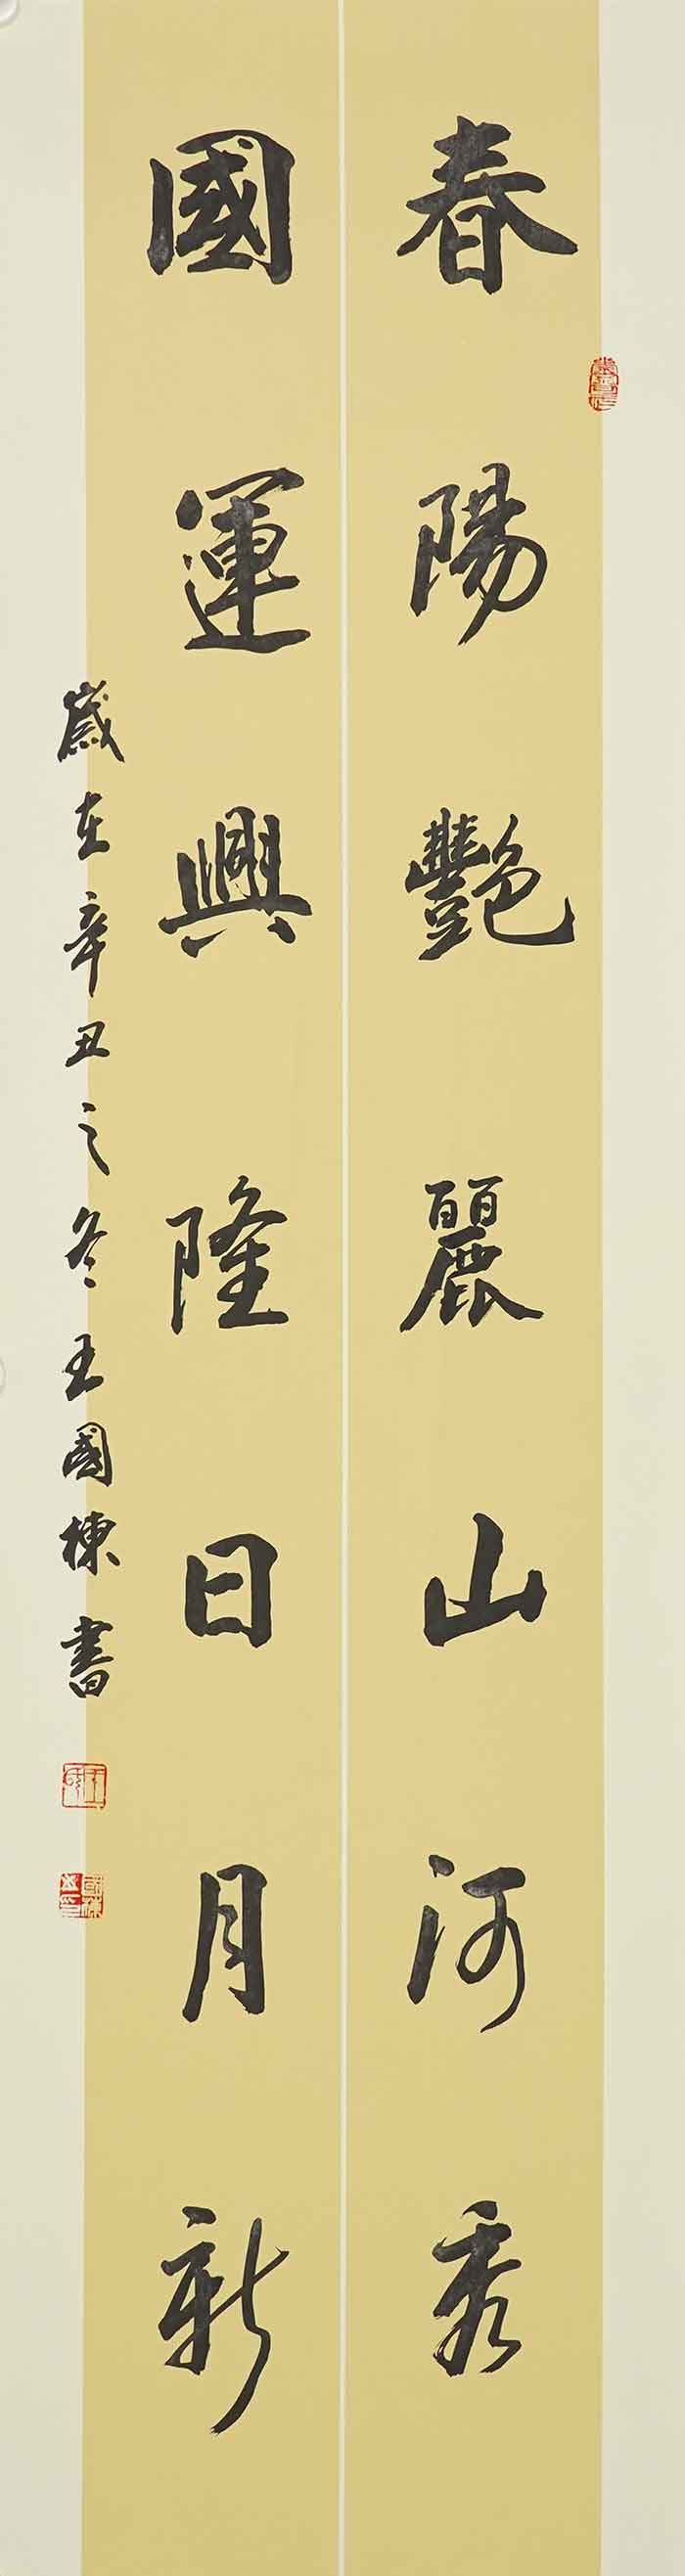 春陽艷麗山河秀
國運興隆日月新
歲在辛丑之冬王國棟書